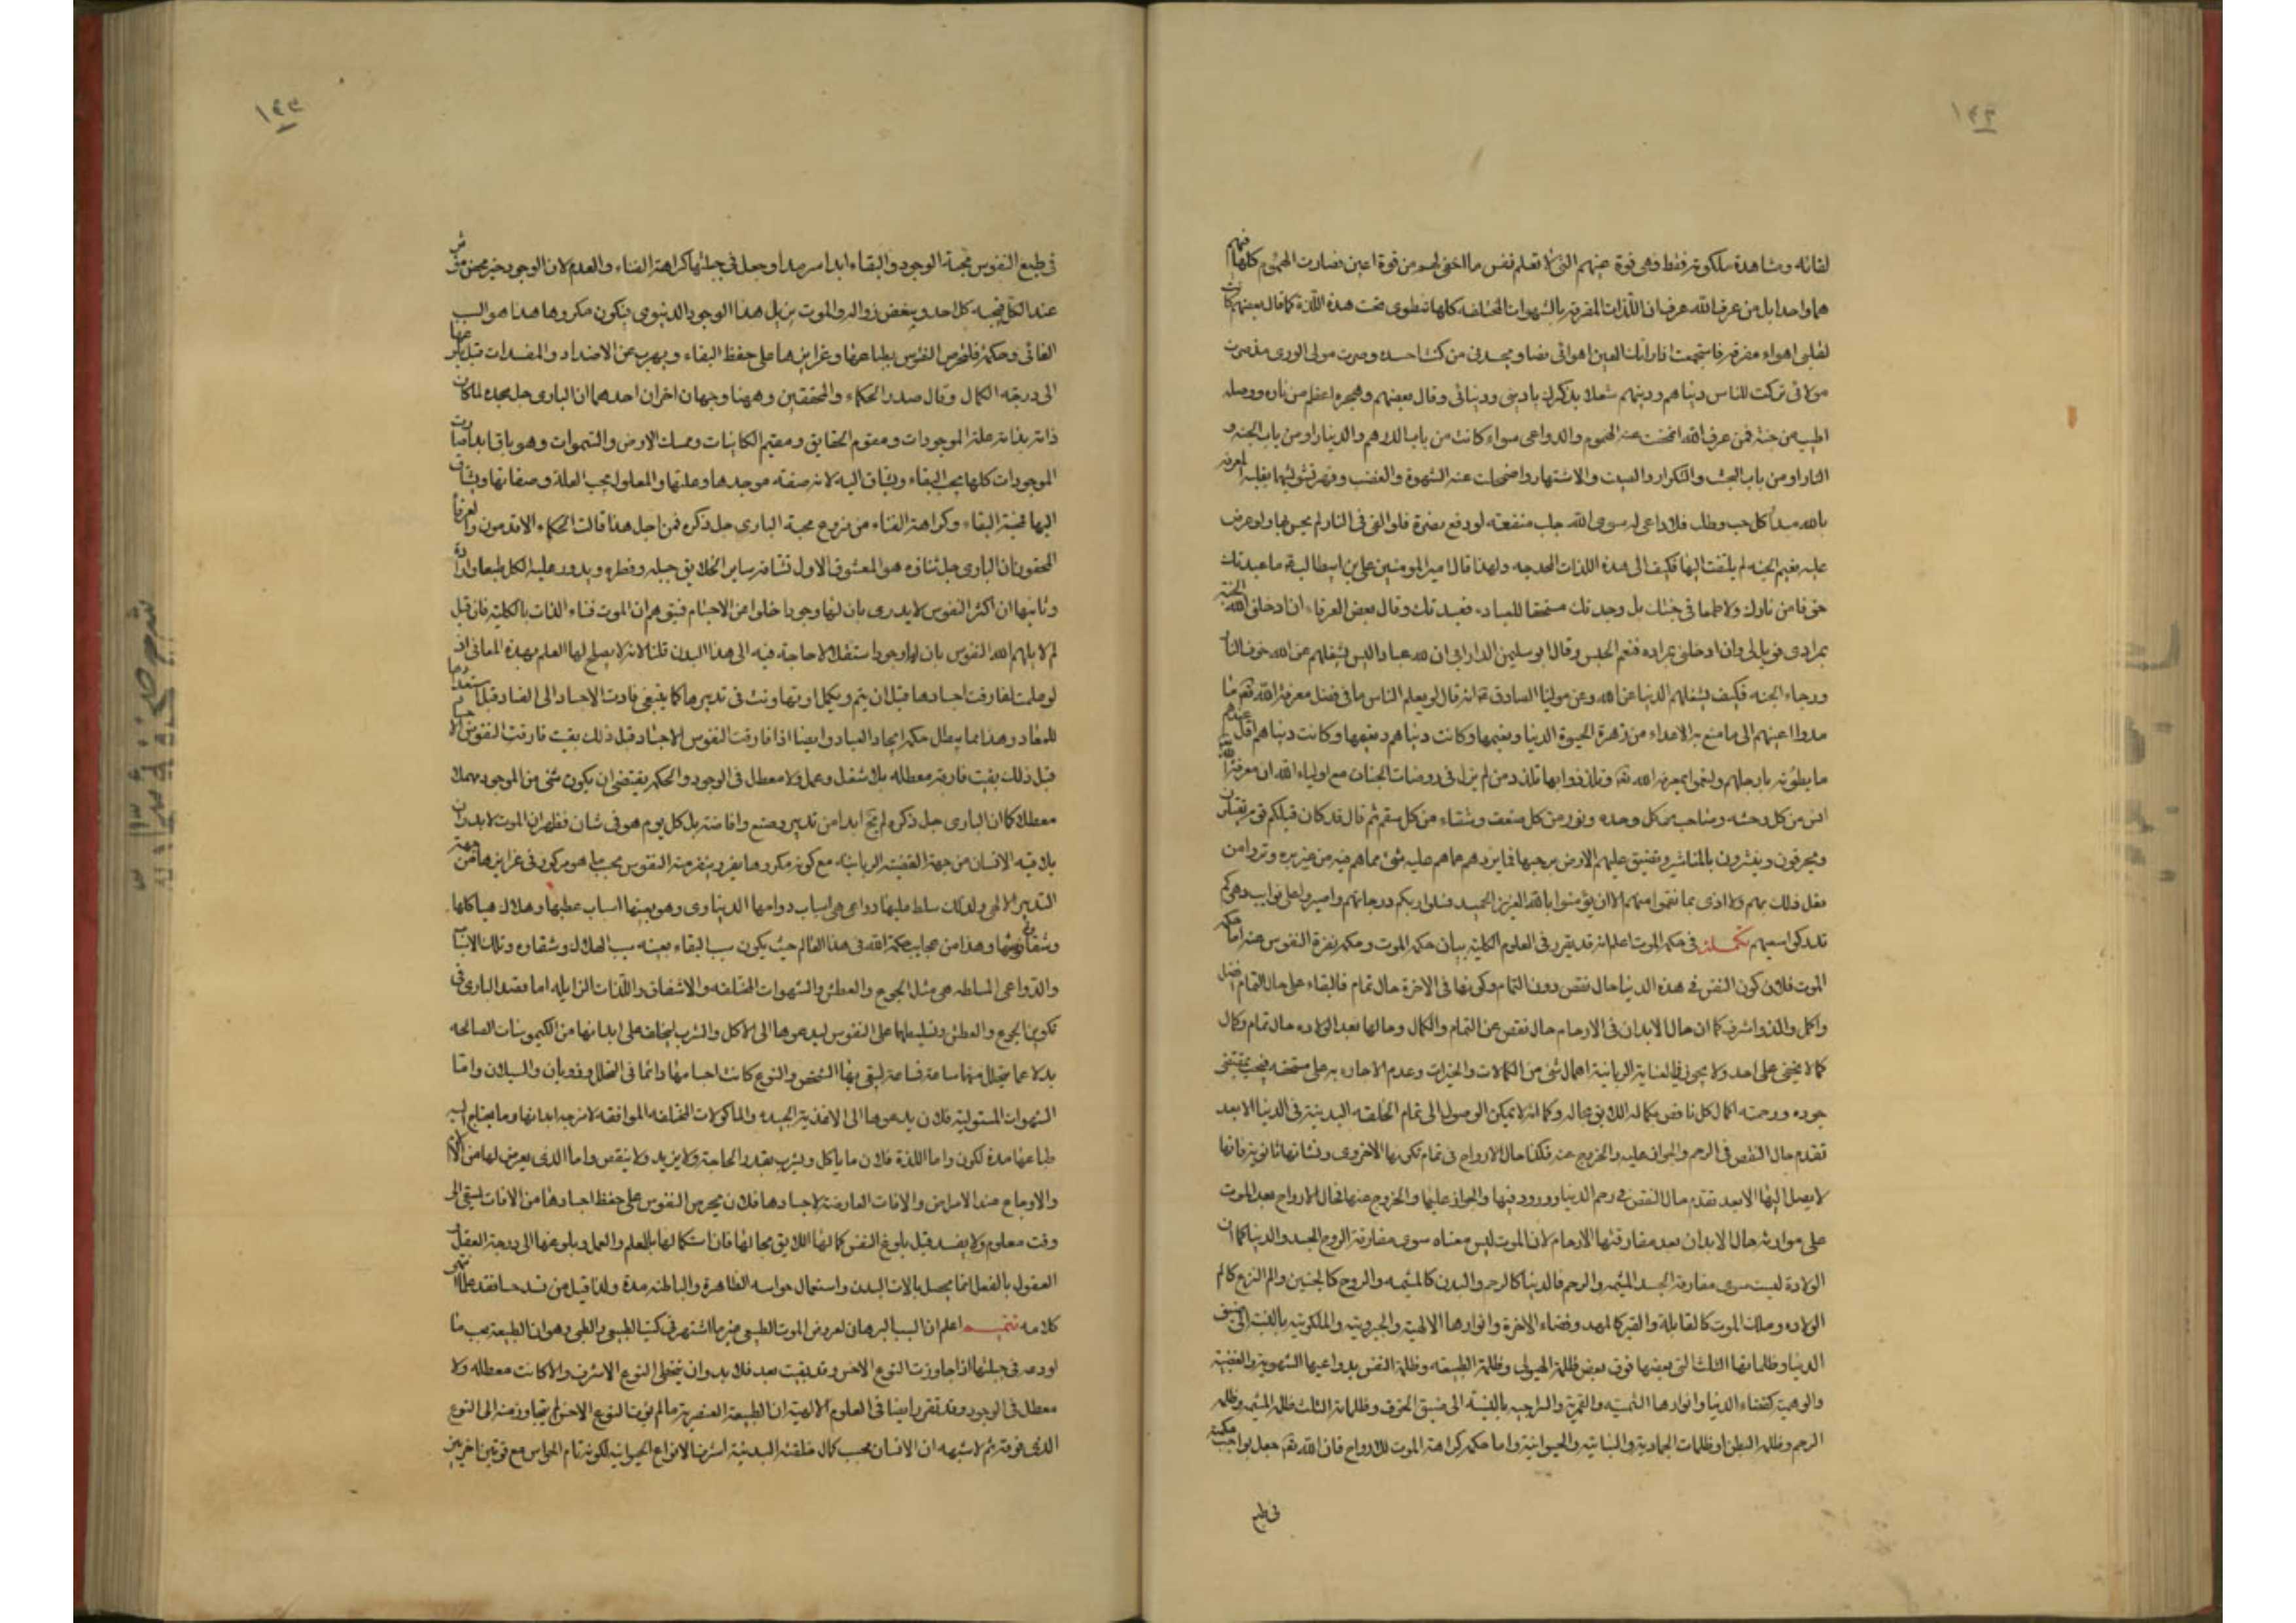 ١٤٢
لقائه ومشاهدة ملكوته فقط وهى قوة عينهم التى لا تعلم نفس ما اخفى لهم من قرة اعين فصارت الهموم كلها فيهم
هما واحدا بل من عرف الله عرف ان اللذات المفرقة بالشهوات المختلفه كلها تنطوى تحت هذه اللذة كما قال بعضهم كانت
لقلبى اهواء مفرقة فاستجمعت اذ راتك العين اهوائى فصار يحسدنى من كنت احسده وصرت مولى الورى مذ صرت
مولائى تركت للناس دنياهم ودينهم شغلا بذكرك يا دينى ودنيائى وقال بعضهم وهجره اعظم من ناره ووصله
اطيب من جنته فمن عرف الله انمحقت عنه الهموم والدواعى سواء كانت من باب الدرهم والدينار او من باب الجنه و
النار او من باب البحث والتكرار والصيت والاشتهار واضمحلت عنه الشهوة والغضب وقهر بغلبه المعرفه
بالله مبدأ كل حب وطلب فلا داعى له سوى الله جلب منفعة او دفع مضرة فلو القى فى النار لم يحس بها ولو عرض
عليه نعيم الجنه لم يلتفت اليها فكيف الى هذه اللذات المخدجه ولهذا قال امير المومنين على بن ابيطالب ما عبدتك
خوفا من نارك ولا طمعا فى جنتك بل وجدتك مستحقا للعباده فعبدتك وقال بعض العرفاء ان ادخلنى الله الجنة
بمرادى فويل لى وان ادخلنى بمراده فنعم الجليس وقال ابو سليمن الدارانى ان لله عبادا ليس يشغلهم عن الله خوف النار
ورجاء الجنه فكيف يشغلهم الدنيا عن الله وعن مولينا الصادق انه قال لو يعلم الناس ما فى فضل معرفة الله تعالى ما
مدوا اعينهم الى ما متع به الاعداء من زهرة الحيوة الدنيا ونعيمها وكانت دنياهم اقل عندهم
ما يطؤنه بارجلهم ولنعموا بمعرفه الله تعالى وتلذذوا بها تلذذ من لم يزل فى روضات الجنات مع اولياء الله ان معرفة الله
انس من كل وحشه وصاحب من كل وحده ونور من كل ظلمة وقوة من كل ضعف وشفاء من كل سقم ثم قال قد كان قبلكم قوم يقتلون
ويحرقون وينشرون بالمناشير وتضيق عليهم الارض برحبها فما يردهم عما هم عليه شئ مما هم فيه من غير تره وتروا من
فعل ذلك بهم ولا اذى بما نقموا منهم الا ان يؤمنوا بالله العزيز الحميد فسلوا ربكم درجاتهم واصبروا على نوايب دهركم
تدركوا سعيهم تكملة فى حكمة الموت اعلم انه قد تقرر فى العلوم الكلية بيان حكمة الموت وحكمة نفرة النفوس عنه اما حكمة
الموت فلان كون النفس فى هذه الدنيا حال نقص دون التمام وكونها فى الاخرة حال تمام فالبقاء على حال التمام افضل
واكمل والذ واشرف كما ان حال الابدان فى الارحام حال نقص عن التمام والكمال وحالها بعد الولاده حال تمام وكمال
كما لا يخفى على احد ولا يجوز فى العناية الربانية اهمال شئ من الكمالات والخيرات وعدم الافاده على مستحقه فيجب بمقتضى
جوده ورحمته اكمال كل ناقص بكماله اللائق بحاله وكما انه لا يمكن الوصول الى تمام الخلقه البدنية فى الدنيا الا بعد
تقدم حال النقص فى الرحم والجواز عليه والخروج عنه فكذا حال الارواح فى تمام تكونها الاخروى ونشأتها الثانوية فانها
لا يصل اليها الا بعد تقدم حال النقص فى رحم الدنيا وورود فيها والجواز عليها والخروج عنها فحال الارواح بعد الموت
على موازنة حال الابدان بعد مفارقتها الارحام لان الموت ليس معناه سوى مفارقة الروح الجسد والدنيا كما ان
الولادة ليست سوى مفارقة الجسد المشيمه والرحم فالدنيا كالرحم والبدن كالمشيمه والروح كالجنين والم النزع كالم
الولاده وملك الموت كالقابلة والقبر كالمهد وفضاء الاخرة وانوارها الالهية والجبروتية والملكوتية بالنسبة الى ضيق
الدنيا وظلماتها الثلث التى بعضها فوق بعض ظلمة الهيولى وظلمة الطبيعه وظلمة النفس بدواعيها الشهوية والغضبية
والوهمية كفضاء الدنيا وانوارها الشمسية والقمرية والسراجيه بالنسبة الى ضيق الجوف وظلماته الثلث ظلمة المشيمه وظلمه
الرحم وظلمه البطن او ظلمات الجمادية والنباتية والحيوانية واما حكمة كراهة الموت للارواح فان الله تعالى جعل بواجب حكمته
فى طبع
١٤٣
فى طبع النفوس محبة الوجود والبقاء ابدا سرمدا وجعل فى جبلتها كراهة الفناء والعدم لان الوجود خير محض مؤثر
عند الكل فيحبه كل احد ويبغض زواله والموت يزيل هذا الوجود الدنيوى فيكون مكروها هذا هو السبب
الغائى وحكمة فلتحرص النفوس بطباعها وغرايزها على حفظ البقاء ويهرب عن الاضداد والمفسدات قبل بلوغها
الى درجة الكمال وقال صدر الحكماء والمحققين وههنا وجهان اخران احدهما ان البارى جل مجده لما كان
ذاته بذاته علة الموجودات ومقوم الحقايق ومقيم الكاينات وممسك الارض والسموات وهو باق ابدا صارت
الموجودات كلها يحب البقاء ويشتاق اليه لانه صفة موجدها وعلتها والمعلول يحب العلة وصفاتها ويشتاق
اليها فمحبة البقاء وكراهة الفناء من فروع محبة البارى جل ذكره فمن اجل هذا قالت الحكماء الاقدمون والعرفاء
المحققون ان البارى جل ثناؤه هو المعشوق الاول تشتاقه ساير الخلايق جبلة وفطرة ويدور عليه الكل طبعا وارادة
وثانيها ان اكثر النفوس لا يدرى بان لها وجودا خلوا من الاجسام فيتوهم ان الموت فناء الذات بالكلية فان قيل
لم لا يلهم الله النفوس بان لها وجودا مستقلا لا حاجة فيه الى هذا البدن قلنا لانه لا يصلح لها العلم بهذه المعانى اذ
لو علمت لفارقت اجسادها قبل ان يتم ويكمل او تهاونت فى تدبيرها كما ينبغى فادت الاجساد الى الفساد قبل استعدادها
للمعاد وهذا مما يبطل حكمة ايجاد العباد وايضا اذا فارقت النفوس الاجساد قبل ذلك بقيت فارقت النفوس الاجساد
قبل ذلك بقيت فارغة معطله بلا شغل وعمل ولا معطل فى الوجود والحكمة يقتضى ان يكون شئ من الموجود مهملا
معطلا كما ان البارى جل ذكره لم يخل ابدا من تدبير وصنع وافاضة بل كل يوم هو فى شان فظهر ان الموت لا بد وان
يلاقيه الانسان من جهة القضية الربانية مع كونه مكروها يفر وينفر منه النفوس بحسب ما هو مركوز فى غرايزها من جهة
التدبير الالهى ولذلك سلط عليها دواعى هى اسباب دوامها الدنياوى وهو بعينها اسباب عطبها وهلاك هياكلها
وشقاوتها وهذا من عجايب حكمة الله فى هذا العالم حيث يكون سبب البقاء بعينه سبب الهلاك وشقاوه وتلك الاسباب
والدواعى المسلطه هى مثل الجوع والعطش والشهوات المختلفه والاشفاق واللذات الزايله اما مقصد البارى فى
تكوين الجوع والعطش وتسليطهما على النفوس ليدعوها الى الاكل والشرب ليخلف على ابدانها من الكيموسات الصالحه
بدلا عما يتحلل منها ساعة فساعة ليبقى بها الشخص والنوع كانت اجسامها دائما فى التحلل والذوبان والسيلان واما
الشهوات المستولية فلان يدعوها الى الاغذية الجيده والماكولات المختلفه الموافقه لامزجه ابدانها وما يحتاج اليه
طباعها مدة لكون واما اللذة فلان ما ياكل ويشرب بقدر الحاجة ولا يزيد ولا ينقص واما الذى يعرض لها من الالام
والاوجاع عند الامراض والافات العارضة لاجسادها فلان يحرص النفوس على حفظ اجسادها من الافات ليبقى الى
وقت معلوم ولا يفسد قبل بلوغ النفس كمالها اللايق بحالها فان استكمالها بالعلم والعمل وبلوغها الى درجة العقل
المعقول بالفعل انما يحصل بالات البدن واستعمال حواسه الظاهرة والباطنه مدة ولذا قيل من فقد حسا فقد علما انتهى
كلامه تتميم اعلم ان السبب البرهان لعروض الموت الطبيعى غير ما اشتهر فى كتب الطبيعى والطبى وهو ان الطبيعة بحسب ما
اودعه فى جبلتها اذا جاوزت النوع الاخس وقد بقيت بعد فلا بد وان يتخطى النوع الاشرف والا كانت معطله ولا
معطل فى الوجود وقد تقرر ايضا فى العلوم الالهية ان الطبيعة العنصرية ما لم يوف النوع الاخس لم يتجاوز منه الى النوع
الذى فوقه ثم لا شبهه ان الانسان بحسب كمال خلقته البدنية اشرف الانواع الحيوانيه لكونه تام الحواس مع قوتين اخريين